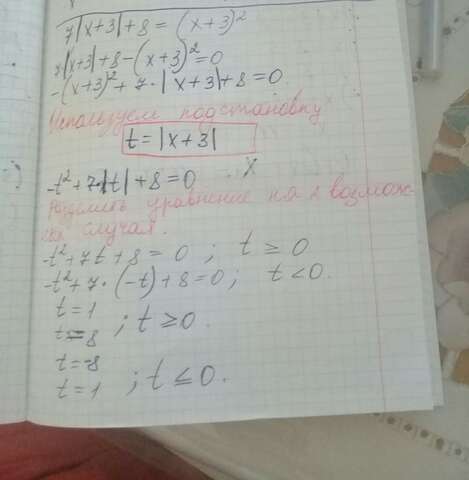 7|x+3|+8=(x+3)²
7|x+3|+8-(x+3)²=0
-(x+3)²+7·|x+3|+8=0
Используем подстановку
t=|x+3|
-t²+7·|t|+8=0
Разделить уравнение на 2 возмож-
случая.
-t²+7t+8=0; t≥0
-t²+7·(-t)+8=0; t<0.
t=1
t=8 ; t≥0.
t=-8
t=1 ; t≤0.